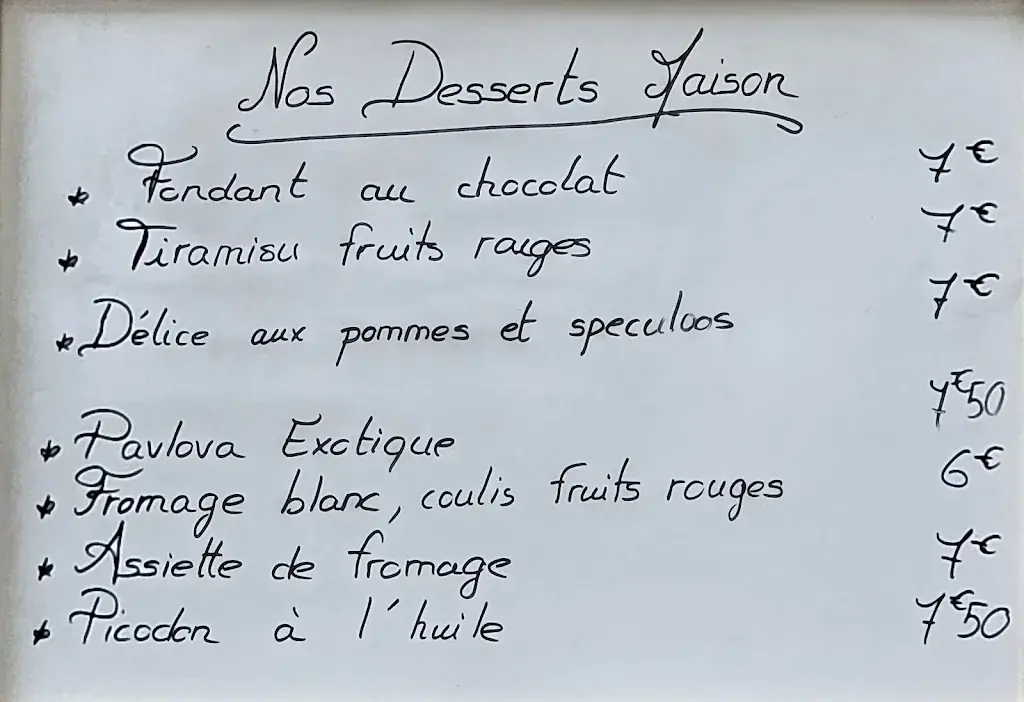 Nos Desserts Maison
* Fondant au chocolat 7€
* Tiramisu fruits rouges 7€
* Délice aux pommes et speculoos 7€
* Pavlova Exotique 7€50
* Fromage blanc, coulis fruits rouges 6€
* Assiette de fromage 7€
* Picodon à l'huile 7€50